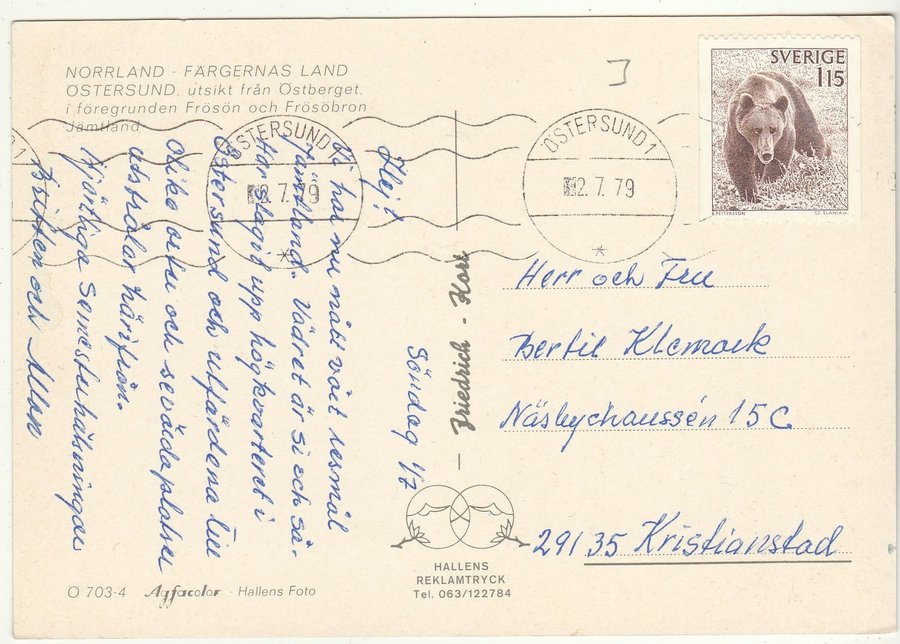 NORRLAND - FÄRGERNAS LAND
ÖSTERSUND, utsikt från Östberget,
i föregrunden Frösön och Frösöbron
Jämtland
SVERIGE
115
ÖSTERSUND 1
2.7.79
ÖSTERSUND 1
2.7.79
Söndag 1/7
Hej!
Vi har nu nått vårt resmål
Jämtland. Vädret är si och så.
Har slagit upp högkvarteret i
Östersund och utfärderna till
Olika orter och sevärda platser
utstrålar härifrån.
Hjärtliga Semesterhälsningar
och Allan
Friedrich - Kort
Herr och Fru
Bertil Klemack
Näsbychaussén 15C
291 35 Kristianstad
HALLENS
REKLAMTRYCK
Tel. 063/122784
Ö 703-4 Agfacolor - Hallens Foto